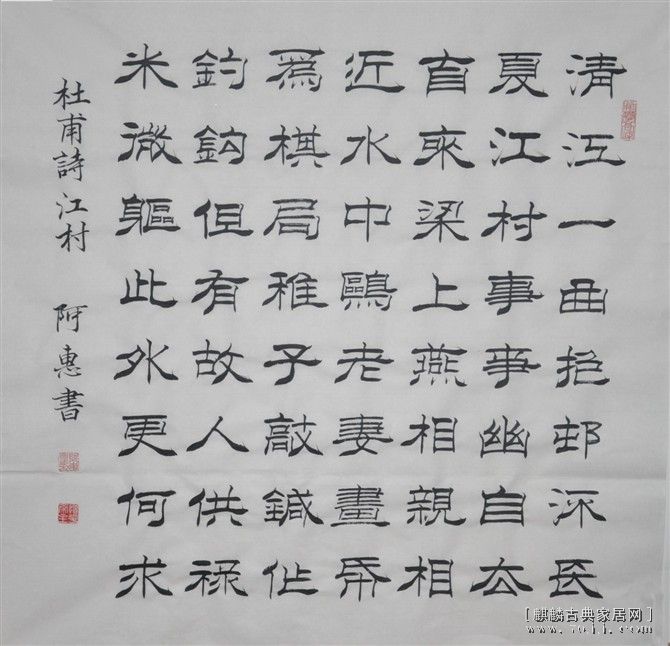 清江一曲抱邨流長
夏江村事事幽自厺
自來梁上燕相親相
近水中鷗老妻畫帋
爲棋局稚子敲鍼作
釣鉤但有故人供祿
米微軀此外更何求
杜甫詩江村 阿惠書
[麒麟古典家居网]